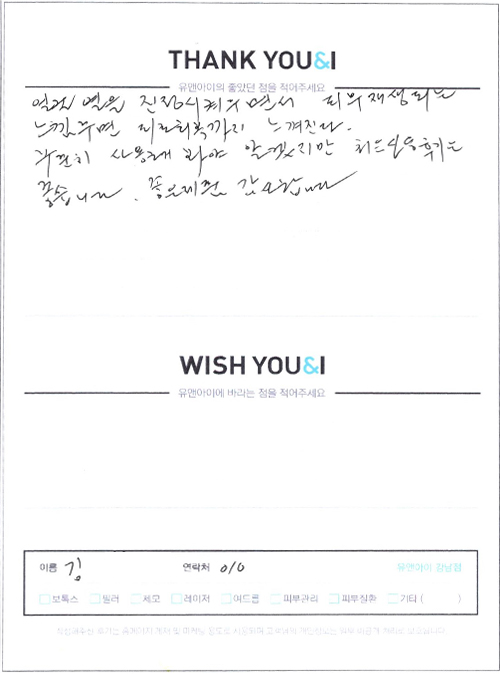 THANK YOU&I
유앤아이의 좋았던 점을 적어주세요
열을 진정시켜주면서 피부재생되는
느낌주면 피로회복까지 느껴진다.
꾸준히 사용해 봐야 알겠지만
좋습니다. 좋은제품 감사합니다
WISH YOU&I
유앤아이에 바라는 점을 적어주세요
이름 김 연락처 010 유앤아이 강남점
보톡스 필러 제모 레이저 여드름 피부관리 피부질환 기타 ( )